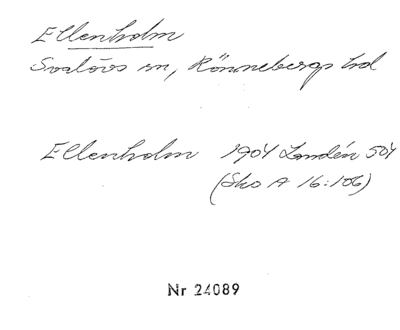 Ellenholm
Svalövs sn, Rönnebergs hd
Ellenholm 1904 Landén 504
(Sko A 16:106)
Nr 24089